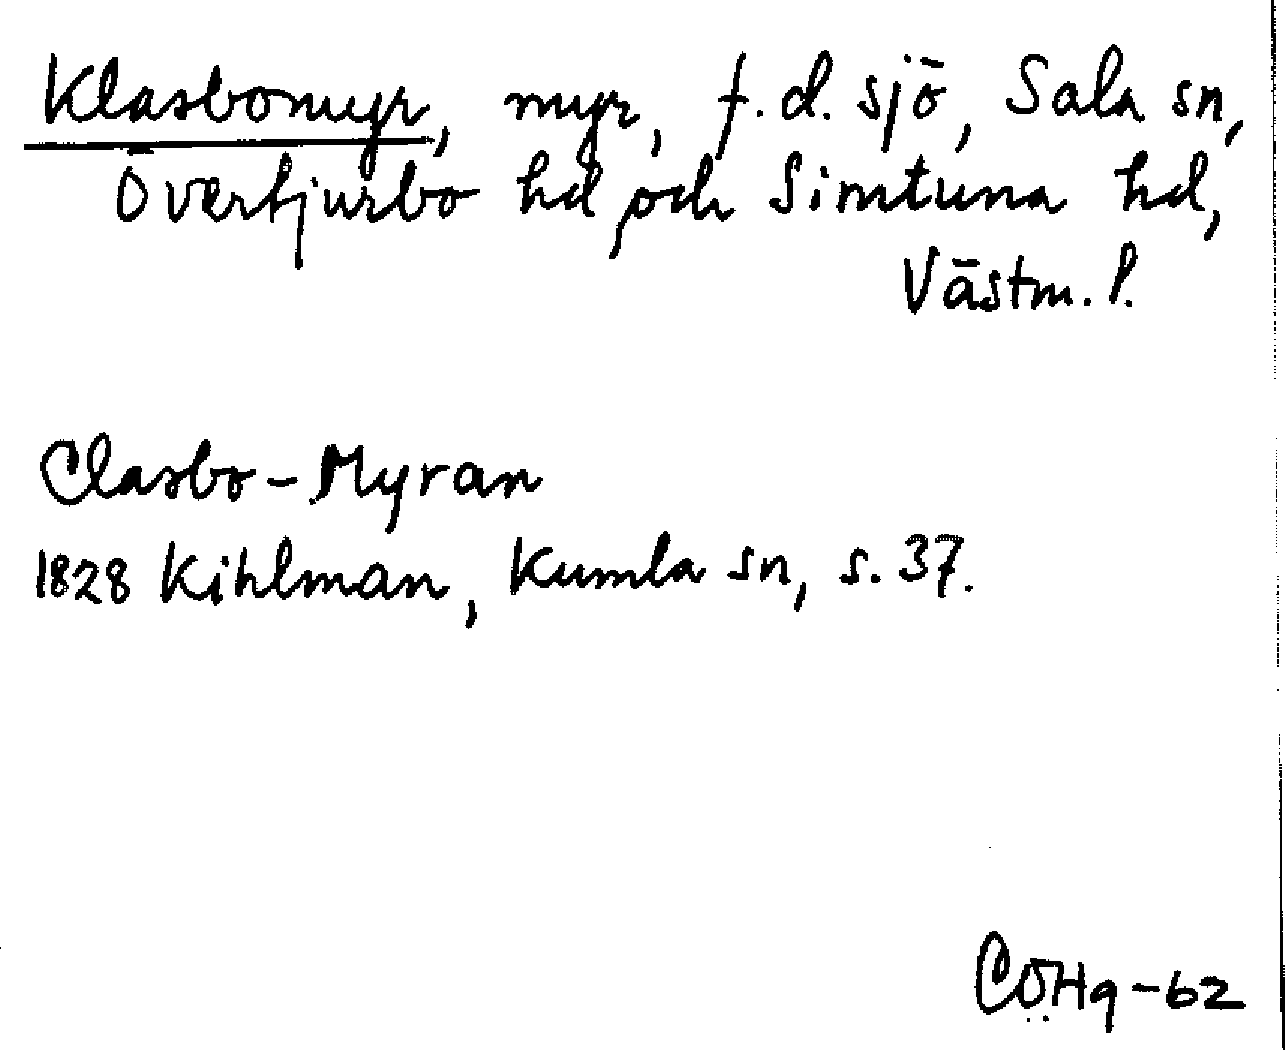 Klasbomyr, myr, f.d. sjö, Sala sn,
Övertjurbo hd, och Simtuna hd,
Västm. l.
Clasbo-Myran
1828 Kihlman, Kumla sn, s. 37.
CÖHg-62